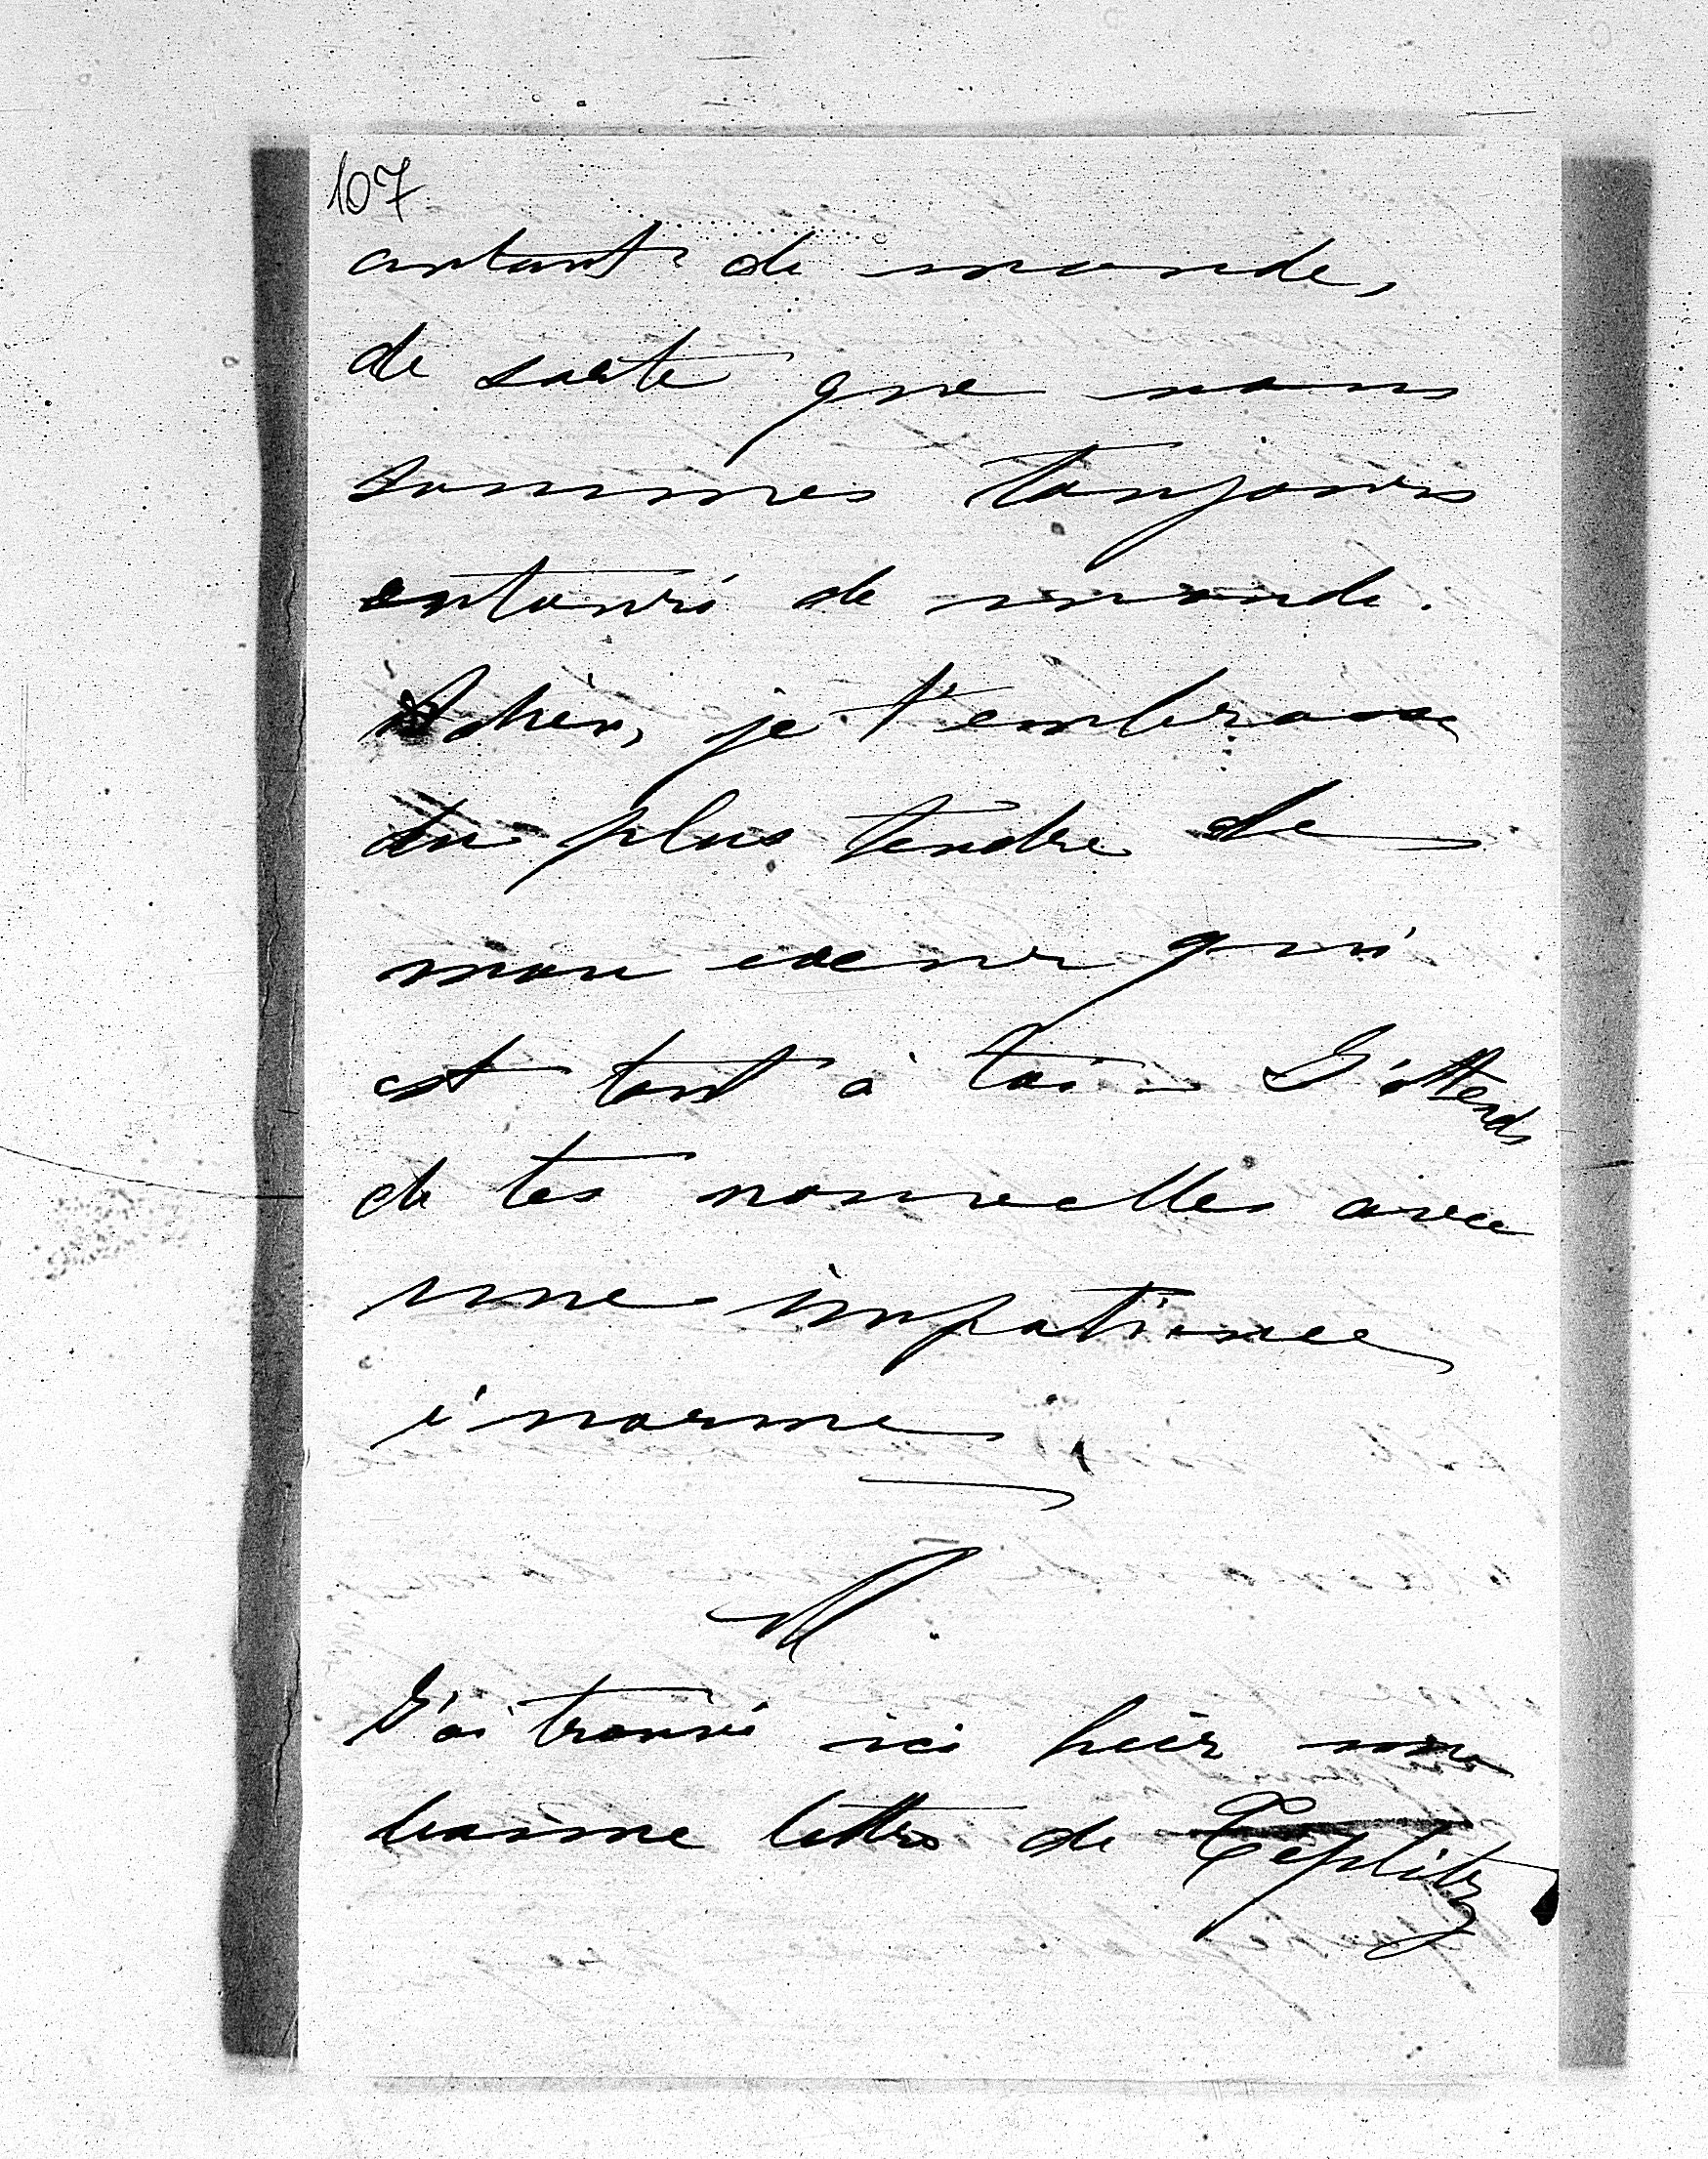 107
autant de monde,
de sorte que nous
sommes toujours
entouré de monde.
Adieu, je t'embrasse
du plus tendre de
mon coeur qui
est tout à toi – J'attends
de tes nouvelles avec
une impatience
énorme.
M.
J'ai trouvé ici hier une
bonne lettre de Teplitz